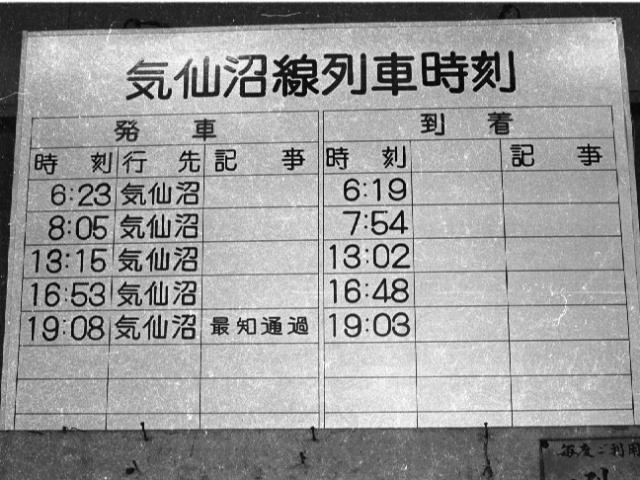 気仙沼線列車時刻
発車 到着
時刻 行先 記事 時刻 記事
6:23 気仙沼 6:19
8:05 気仙沼 7:54
13:15 気仙沼 13:02
16:53 気仙沼 16:48
19:08 気仙沼 最知通過 19:03
毎度ご利用